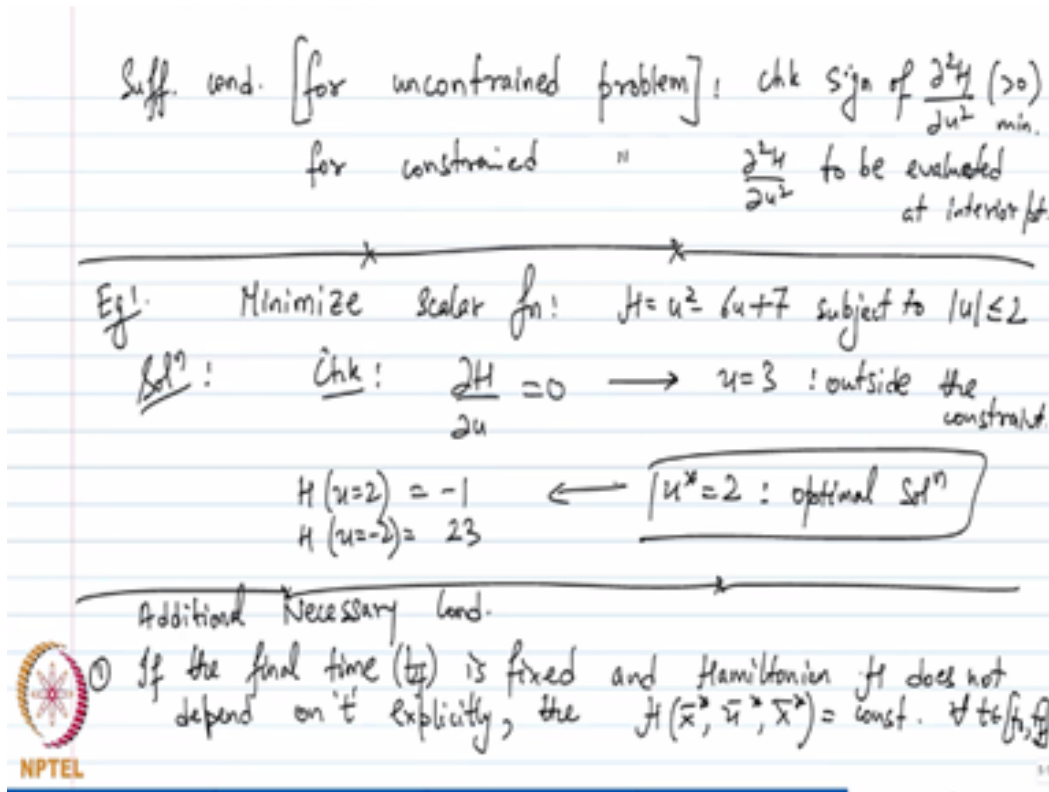 Suff. cond. [for uncontrained problem]: chk sign of ∂²H/∂u² (>0) min.
for constrained " ∂²H/∂u² to be evaluated
at interior pt.
Eg! Minimize Scalar fn: H = u² - 6u+7 subject to |u|≤2
Solⁿ: Chk: ∂H/∂u = 0 → u=3 : outside the
constraint.
H (u=2) = -1 ← u*=2 : optimal Solⁿ
H (u=-2) = 23
Additional Necessary Cond.
① If the final time (t_f) is fixed and Hamiltonian H does not
depend on 't' explicitly, the H(x̄*, ū*, λ̄*) = const. ∀ t∈[t₀, t_f]
NPTEL